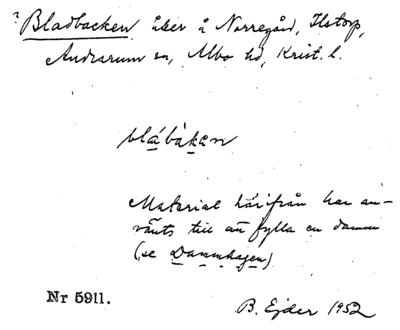 ? Bladbacken åker å Norregård, Ilstorp,
Andrarum sn, Albo hd, Krist. l.
blábàken
Material härifrån har an-
vänts till att fylla en damm
(se Dammhagen)
Nr 5911.
B. Ejder 1952